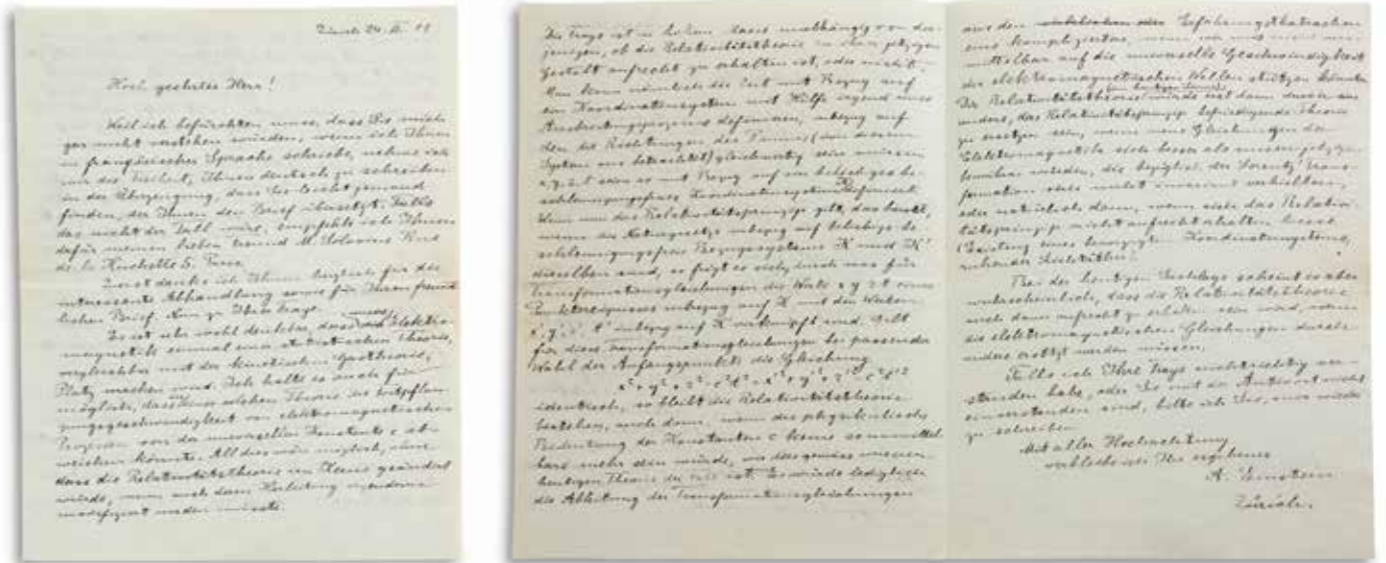 Hoch geehrter Herr!
Weil ich befürchten muss, dass Sie mich
gar nicht verstehen würden, wenn ich Ihnen
in französischer Sprache schreibe, nehme ich
mir die Freiheit, Ihnen deutsch zu schreiben
in der Überzeugung, dass Sie leicht jemand
finden, der Ihnen den Brief übersetzt. Falls
das nicht der Fall wäre, empfehle ich Ihnen
dafür meinen lieben Freund M. Solovine Rue
Zuerst danke ich Ihnen herzlich für die
interessante Abhandlung sowie für Ihren freund-
lichen Brief. Nun zu Ihrer Frage.
Es ist sehr wohl denkbar, dass Elektro-
magnetik einmal einer statistischen Theorie,
vergleichbar mit der kinetischen Gastheorie,
Platz machen wird. Ich halte es auch für
möglich, dass solchen Theorie die Fortpflan-
zungsgeschwindigkeit von elektromagnetischen
Prozessen von der universellen Konstante c ab-
weichen könnte. All dies wäre möglich, ohne
dass die Relativitätstheorie im Kerne geändert
würde, wenn auch dann Herleitung
modifiziert werden müsste.
Die Frage ist in hohem Masse unabhängig von der-
jenigen, ob die Relativitätstheorie in ihrer jetzigen
Gestalt aufrecht zu erhalten ist, oder nicht.
Man kann nämlich die Zeit mit Bezug auf
ein Koordinatensystem mit Hilfe irgend eines
Ausbreitungsprozesses definieren, inbezug auf
den die Richtungen des Raumes (von diesem
System aus betrachtet) gleichwertig sein müssen
Koordinatensystem definiert.
Wenn nun das Relativitätsprinzip gilt, das heisst,
wenn die Naturgesetze inbezug auf beliebige be-
schleunigungsfreie Bezugssysteme K und K'
dieselben sind, so frägt es sich, durch was für
Transformationsgleichungen die Werte x y z t eines
Punktereignisses inbezug auf K mit den Werten
x', y', z', t' inbezug auf K' verknüpft sind. Gilt
für diese Transformationsgleichungen bei passender
Wahl der Anfangspunkte die Gleichung
x² + y² + z² - c²t² = x'² + y'² + z'² - c²t'²
identisch, so bleibt die Relativitätstheorie
bestehen, auch dann, wenn die physikalische
Bedeutung der Konstanten c keine so unmittel-
bare mehr sein würde, wie dies gemäss unserer
heutigen Theorie der Fall ist. Es würde lediglich
die Ableitung der Transformationsgleichungen
aus den Erfahrungsthatsachen
eine kompliziertere, wenn wir uns nicht
mittelbar auf die universelle Geschwindigkeit
der elektromagnetischen Wellen stützen könnten.
Die Relativitätstheorie (im heutigen Sinne) würde erst dann durch eine
andere, das Relativitätsprinzip befriedigende Theorie
zu ersetzen sein, wenn neue Gleichungen der
Elektromagnetik sich besser als unsere jetzigen
bewähren würden, die bezüglich der Lorentz-Trans-
formation sich nicht invariant verhielten,
oder natürlich dann, wenn sich das Relativi-
tätsprinzip nicht aufrecht erhalten liesse
(Existenz eines bevorzugten Koordinatensystems,
ruhender Lichtäther).
Bei der heutigen Sachlage scheint es aber
wahrscheinlich, dass die Relativitätstheorie
auch dann aufrecht zu erhalten sein wird, wenn
die elektromagnetischen Gleichungen durch
andere ersetzt werden müssen.
Falls ich Ihre Frage nicht richtig ver-
standen habe, oder Sie mit der Antwort nicht
einverstanden sind, bitte ich Sie, mir wieder
zu schreiben.
Mit aller Hochachtung
verbleibe ich Ihr ergebener
A. Einstein
Zürich.